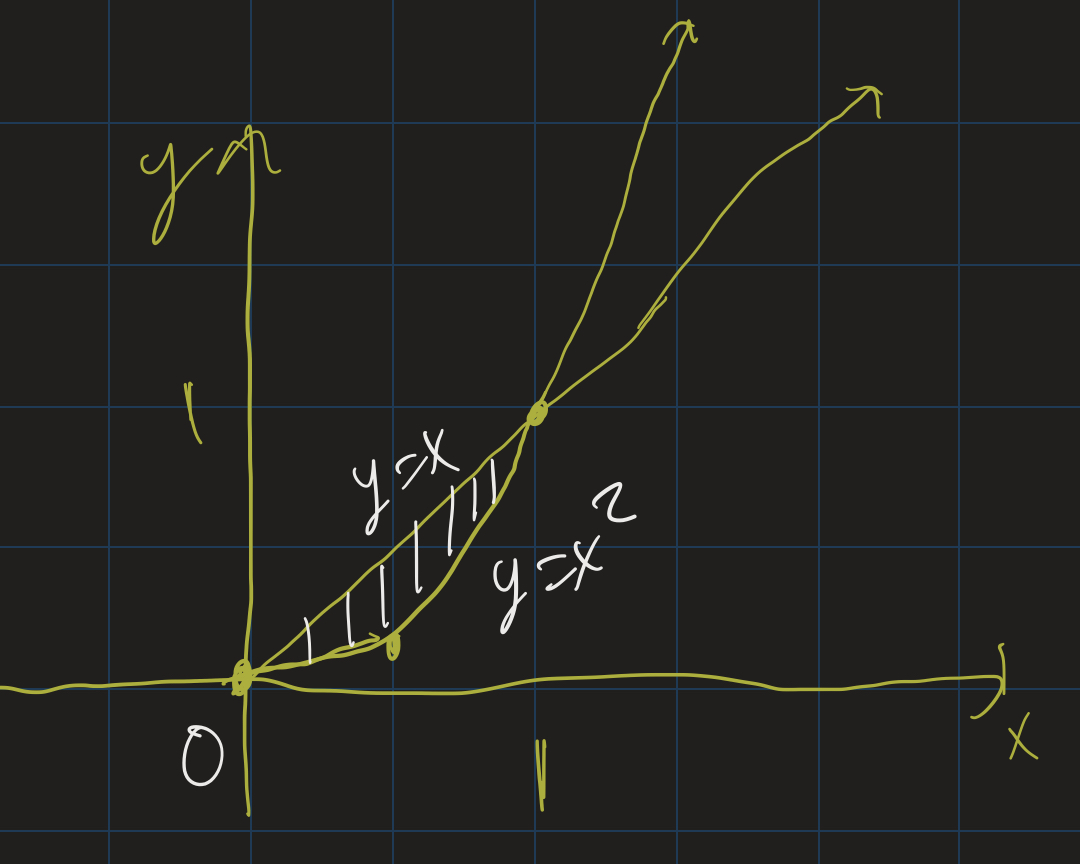 y
1
y=x
y=x²
0
1
x